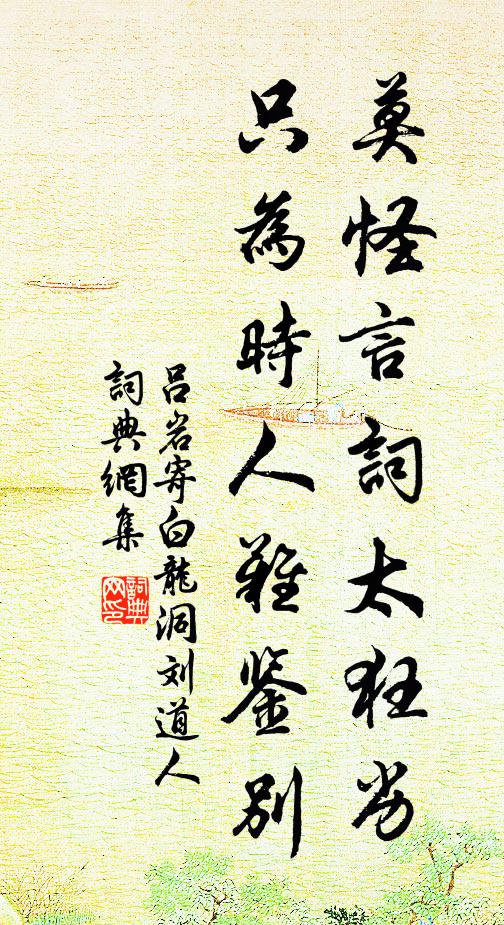 莫怪言詞太狂劣
只為時人難鉴别
吕岩寄白龍洞刘道人
詞典網集
詞典
网印